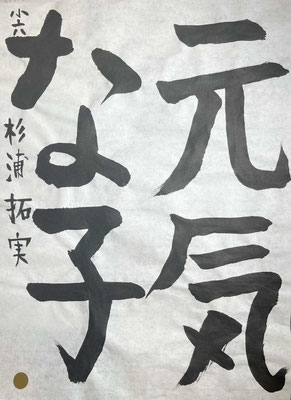 元気
な子
小六 杉浦拓実